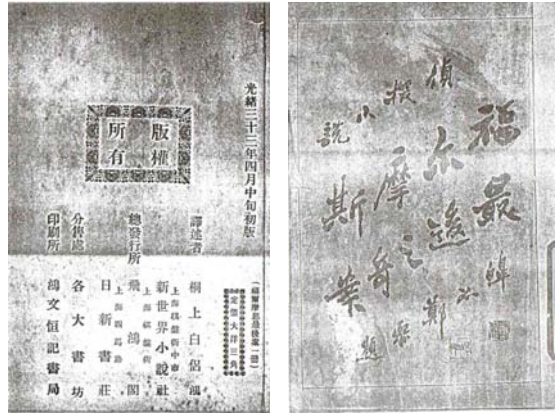 光緒三十二年四月中旬初版
版權
所有
定價大洋三角
譯述者 桐上白侶鴻
總發行所
上海棋盤街中市
新世界小說社
上海棋盤街
飛鴻閣
上海四馬路
日新書莊
分售處 各大書坊
印刷所 鴻文恒記書局
偵探小說
福尔摩斯
最後之奇案